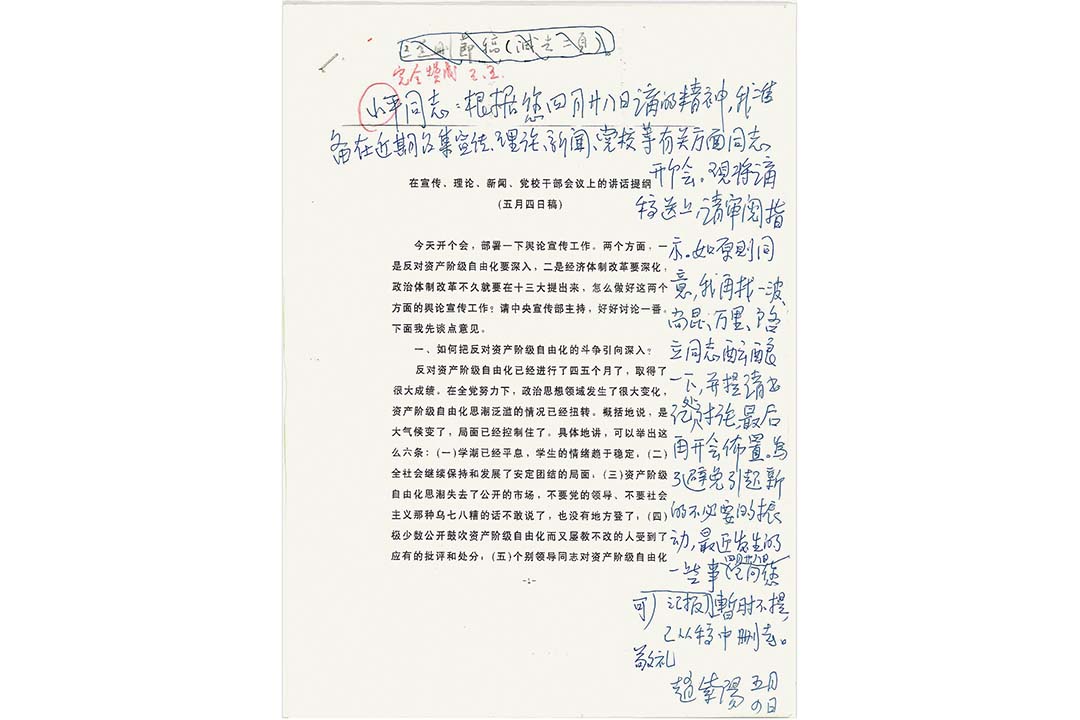 这是删节稿(减去二页)。
完全赞成 五.五.
小平同志：根据您四月廿八日讲的精神，我准
备在近期召集宣传、理论、新闻、党校等有关方面同志
开个会。现将讲
稿送上，请审阅指
示。如原则同
意，我再找一波、
尚昆、万里、启
立同志酝酿
一下，并提请书
记处讨论，最后
再开会佈置。为
了避免引起新
的不必要的振
动，最近发生的
一些事(四月廿八日已向您
汇报)暂时不提，
可）
已从稿中删去。
敬礼
赵紫陽 五月
四日
在宣传、理论、新闻、党校干部会议上的讲话提纲
(五月四日稿)
今天开个会，部署一下舆论宣传工作。两个方面，一
是反对资产阶级自由化要深入，二是经济体制改革要深化，
政治体制改革不久就要在十三大提出来，怎么做好这两个
方面的舆论宣传工作？请中央宣传部主持，好好讨论一番。
下面我先谈点意见。
一、如何把反对资产阶级自由化的斗争引向深入？
反对资产阶级自由化已经进行了四五个月了，取得了
很大成绩。在全党努力下，政治思想领域发生了很大变化，
资产阶级自由化思潮泛滥的情况已经扭转。概括地说，是
大气候变了，局面已经控制住了。具体地讲，可以举出这
么六条：(一)学潮已经平息，学生的情绪趋于稳定，(二)
全社会继续保持和发展了安定团结的局面，(三)资产阶级
自由化思潮失去了公开的市场，不要党的领导、不要社会
主义那种乌七八糟的话不敢说了，也没有地方登了，(四)
极少数公开鼓吹资产阶级自由化而又屡教不改的人受到了
应有的批评和处分，(五)个别领导同志对资产阶级自由化
-1-